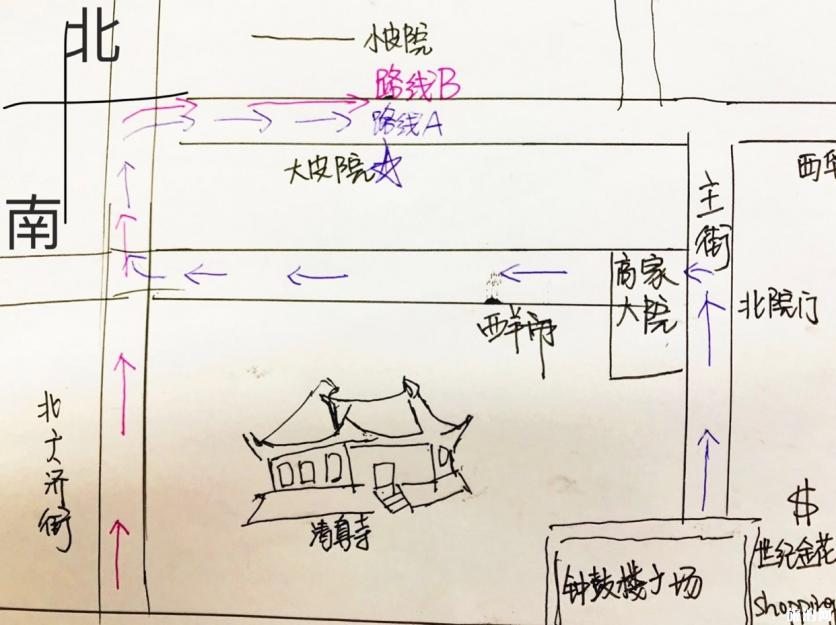 北
小皮院
路线B
路线A
大皮院
西
南
主街
商家
大院
北院门
西羊市
北大济街
清真寺
$
世纪金花
shopping
钟鼓楼广场